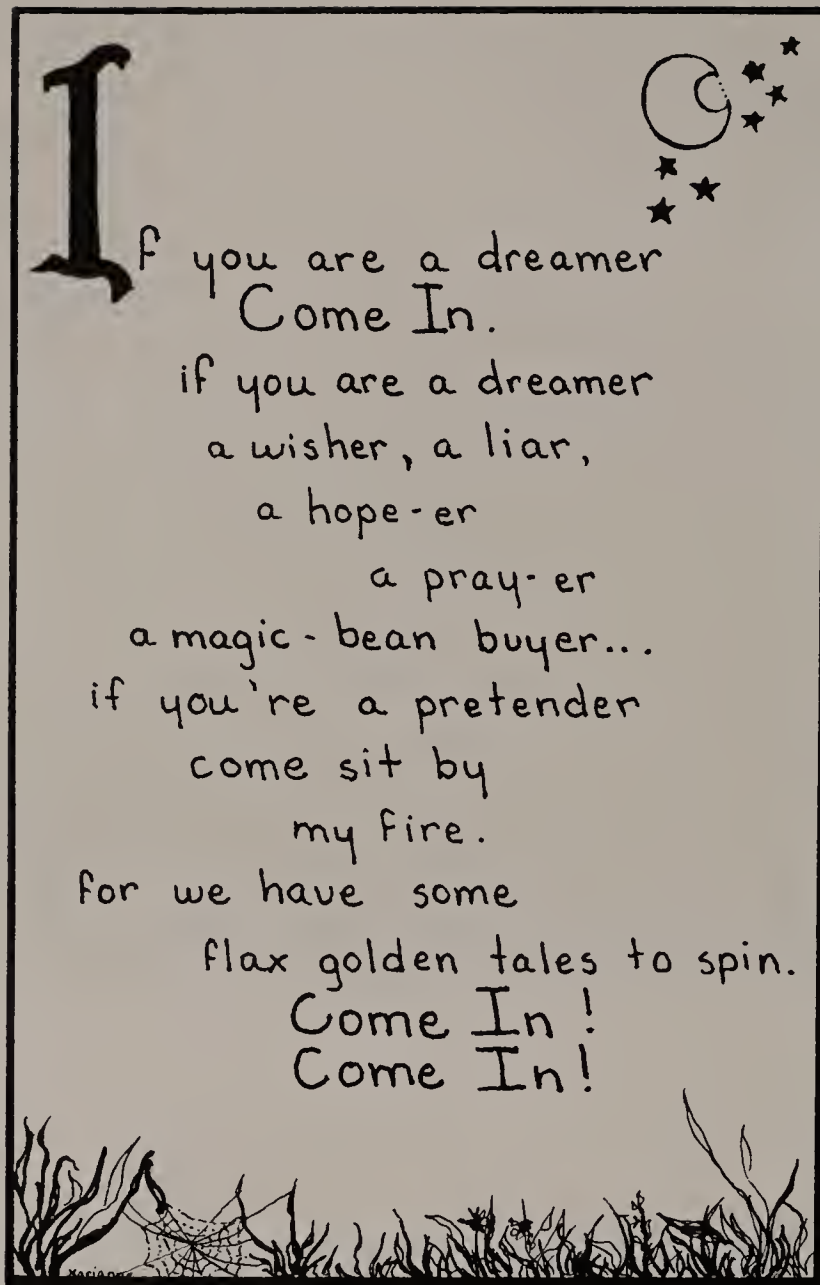 If you are a dreamer
Come In.
if you are a dreamer
a wisher, a liar,
a hope-er
a pray-er
a magic-bean buyer...
if you're a pretender
come sit by
my fire.
for we have some
flax golden tales to spin.
Come In!
Come In!